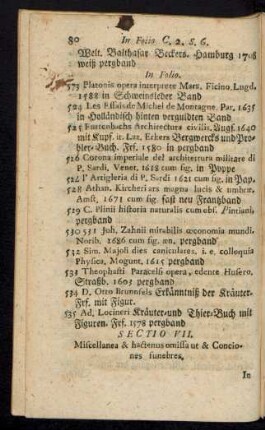 80 In Folio C. 2. S. 6.
Welt. Balthasar Beckers. Hamburg 1708
weiß pergband
In Folio.
523 Platonis opera interprete Mars. Ficino Lugd.
1588 in Schweinsleder Band
524 Les Essais de Michel de Montagne. Par. 1635
in Holländisch hinten verguldten Band
525 Furtenbachs Architectura civilis. Augs. 1640
mit Kupf. it. Laz. Erkern Bergwercks und Pro-
bier-Buch. Frf. 1580 in pergband
526 Corona imperiale del architettura militare di
P. Sardi, Venet. 1618 cum fig. in Poppe
527 l' Artiglieria di P. Sardi 1621 cum fig. in Pap.
528 Athan. Kircheri ars magna lucis & umbræ,
Amst. 1671 cum fig. fast neu Frantzband
529 C. Plinii historia naturalis cum obs. Pintiani,
pergband
530 531 Joh. Zahnii mirabilis œconomia mundi.
Norib. 1686 cum fig. æn. pergband
532 Sim. Majoli dies caniculares, i. e. colloquia
Physica, Mogunt. 1615 pergband
533 Theophrasti Paracelsi opera, edente Husero,
Straßb. 1603 pergband
534 D. Otto Brunnfels Erkänntniß der Kräuter.
Frf. mit Figur.
535 Ad. Locineri Kräuter-und Thier-Buch mit
Figuren. Frf. 1578 pergband
SECTIO VII.
Miscellanea & hactenus omissa ut & Concio-
nes funebres.
In